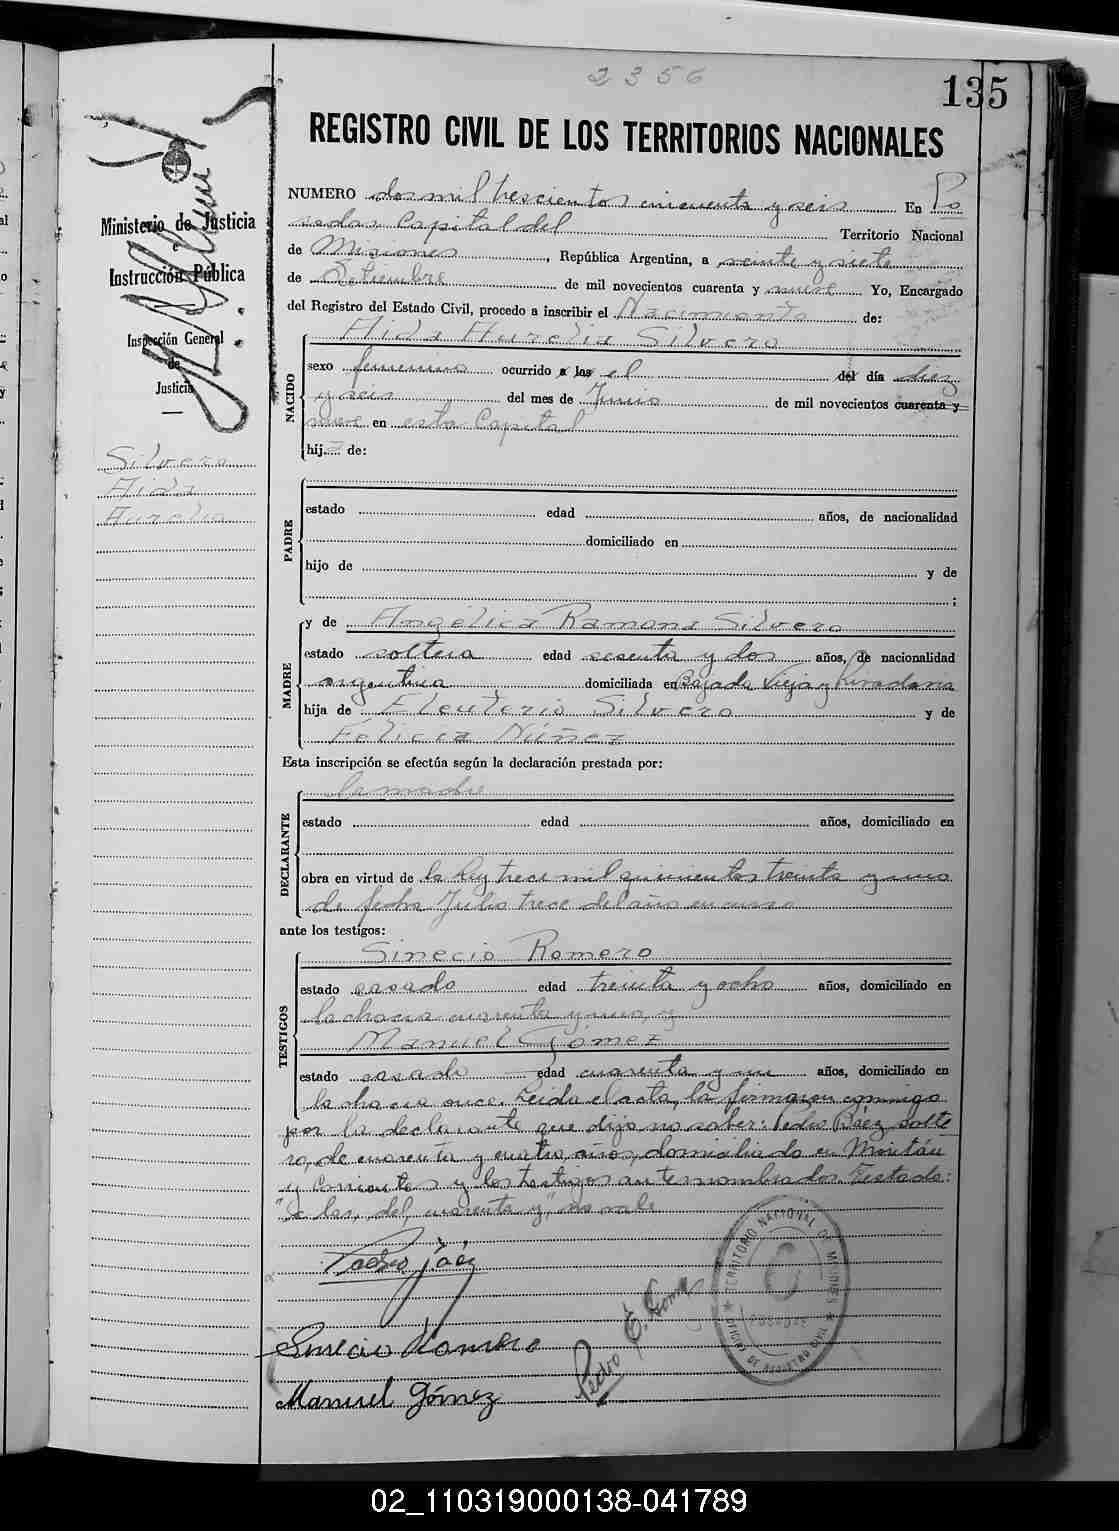 2356
135
REGISTRO CIVIL DE LOS TERRITORIOS NACIONALES
Ministerio de Justicia
e
Instrucción Pública
Inspección General
de
Justicia
Silvero
Aida
Aurelia
NUMERO dos mil trescientos cincuenta y seis En Po
sadas Capital del Territorio Nacional
de Misiones, República Argentina, a veinte y siete
de Setiembre de mil novecientos cuarenta y nueve Yo, Encargado
del Registro del Estado Civil, procedo a inscribir el Nacimiento de:
NACIDO
Aida Aurelia Silvero
sexo femenino ocurrido a las el del día diez
y seis del mes de Junio de mil novecientos cuarenta y
nueve en esta Capital
hija de:
PADRE
estado edad años, de nacionalidad
domiciliado en
hijo de y de
;
MADRE
y de Angélica Ramona Silvero
estado soltera edad sesenta y dos años, de nacionalidad
argentina domiciliada en Bajada Vieja y Rivadavia
hija de Eleuterio Silvero y de
Felicia Núñez
Esta inscripción se efectúa según la declaración prestada por:
DECLARANTE
la madre
estado edad años, domiciliado en
obra en virtud de la ley trece mil quinientos treinta y uno
de fecha Julio trece del año en curso
ante los testigos:
TESTIGOS
Sinecio Romero
estado casado edad treinta y ocho años, domiciliado en
la chacra cuarenta y una, y
Manuel Gómez
estado casado edad cuarenta y un años, domiciliado en
la chacra once. Leida el acta, la firmaron conmigo
por la declarante que dijo no saber: Pedro Báez, solte
ro, de cuarenta y cuatro años, domiciliado en Moritán
y Corrientes y los testigos antenombrados. Testado:
"a las, del, cuarenta y," no vale
Pedro Báez
Sinecio Romero
Manuel Gómez
Pedro E.
TERRITORIO NACIONAL DE MISIONES
OFICINA DE REGISTRO CIVIL
POSADAS
02_110319000138-041789